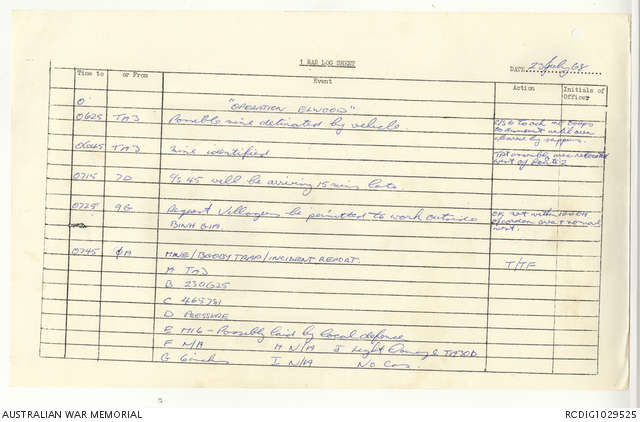 1 RAR LOG SHEET
DATE 23 July 68
Time to or From Event Action Initials of Officer
"OPERATION ELWOOD"
0625 TAJ Possible mine detonated by vehicle.
until area
cleared by sappers.
0645 TAJ Mine identified
0715 7D C/S 45 will be arriving 15 mins late.
0725 9G Request Villagers be permitted to work outside
BINH GIA.
OK not within
0745 MINE/BOOBY TRAP/INCIDENT REPORT. T/TF
A TAJ
B 230625
C 465781
D PRESSURE
E M16 - Possibly laid by local defence
F N/A H N/A J Light Damage
G 6 inches I N/A No Cas.
AUSTRALIAN WAR MEMORIAL
RCDIG1029525